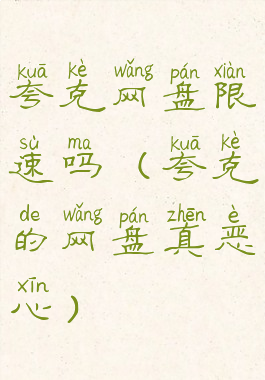 kuā kè wǎng pán xiàn
夸克网盘限
sù ma kuā kè
速吗（夸克
de wǎng pán zhēn è
的网盘真恶
xīn
心）